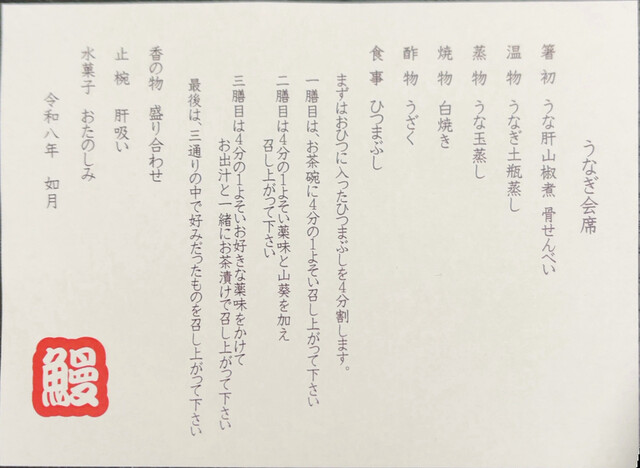 うなぎ会席
箸初 うな肝山椒煮 骨せんべい
温物 うなぎ土瓶蒸し
蒸物 うな玉蒸し
焼物 白焼き
酢物 うざく
食事 ひつまぶし
まずはおひつに入ったひつまぶしを4分割します。
一膳目は、お茶碗に4分の1よそい召し上がって下さい
二膳目は4分の1よそい薬味と山葵を加え
召し上がって下さい
三膳目は4分の1よそいお好きな薬味をかけて
お出汁と一緒にお茶漬けで召し上がって下さい
最後は、三通りの中で好みだつたものを召し上がって下さい
香の物 盛り合わせ
止椀 肝吸い
水菓子 おたのしみ
令和八年 如月
鰻